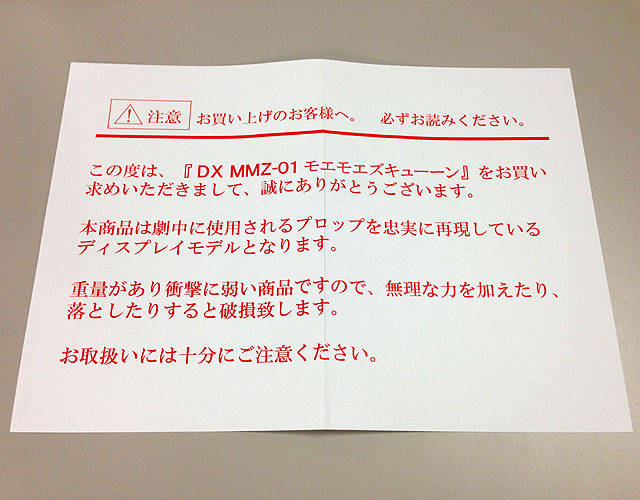 注意 お買い上げのお客様へ。 必ずお読みください。
この度は、『DX MMZ-01 モエモエズキューーン』をお買い
求めいただきまして、誠にありがとうございます。
本商品は劇中に使用されるプロップを忠実に再現している
ディスプレイモデルとなります。
重量があり衝撃に弱い商品ですので、無理な力を加えたり、
落としたりすると破損致します。
お取扱いには十分にご注意ください。